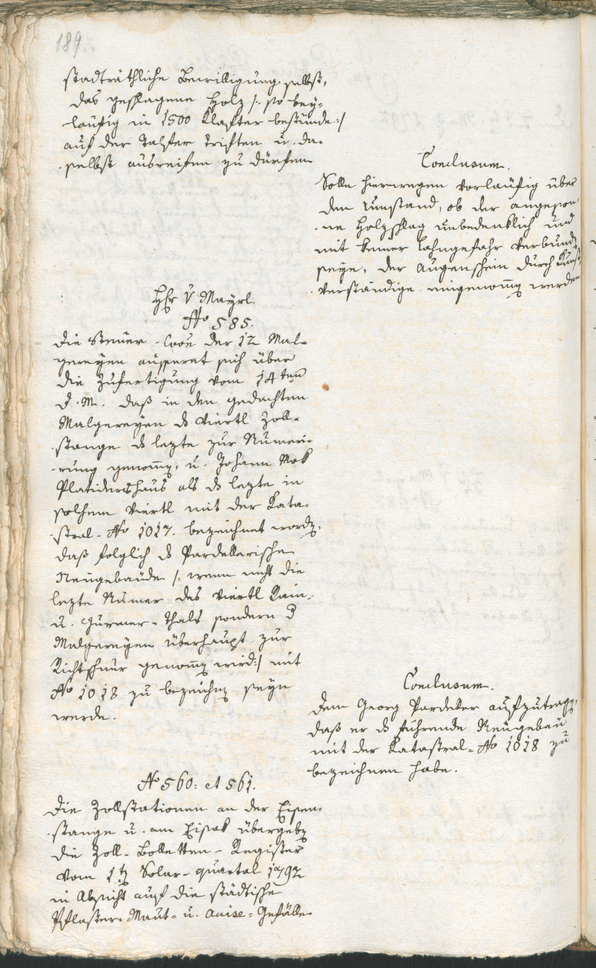 189.
stadträthliche Bewilligung selbst,
das geschlagene Holz /: so bey-
läufig in 1500 Klafter bestünde :/
auf der Talfer triften u. da-
selbst ausreifen zu dürfen
Conclusum.
Solle hierwegen vorläufig über
den Umstand, ob der angeson-
ne Holzschlag unbedenklich und
mit keiner Lahngefahr verbunden
seye, der Augenschein durch Kunst-
verständige eingenommen werden
Hr v Mayrl.
No 585.
Die Steuer-Coon der 12 Mal-
gereyen äusseret sich über
die Zufertigung vom 14ten
d. M. daß in den gedachten
Malgereyen ds Viertl Zoll-
stange ds lezte zur Numeri-
rung genomen, u. Johann
Platidershaus als ds lezte in
solchem Viertl mit der Kata-
stral-No 1017. bezeichnet worden,
daß folglich ds Pardellerische
Neugebäude /: wenn nicht die
lezte Numer des Viertl Rain-
u. -thals sondern d
Malgereyen überhaupt zur
Richtschnur genomen wird :/ mit
No 1018 zu bezeichnen seyn
werde.
Conclusum.
Dem Georg Pardeller aufzutragen,
daß er ds führende Neugebäu
mit der Katastral-No 1018 zu
bezeichnen habe.
No 560: et 561.
Die Zollstationen an der Eisen-
stange u. am Eisak übergeben
die Zoll-Bolletten-Register
vom 1ten Solar-quartal 1792
in Absicht auf die städtische
Pflaster-Maut- u. Accise-Gefälle